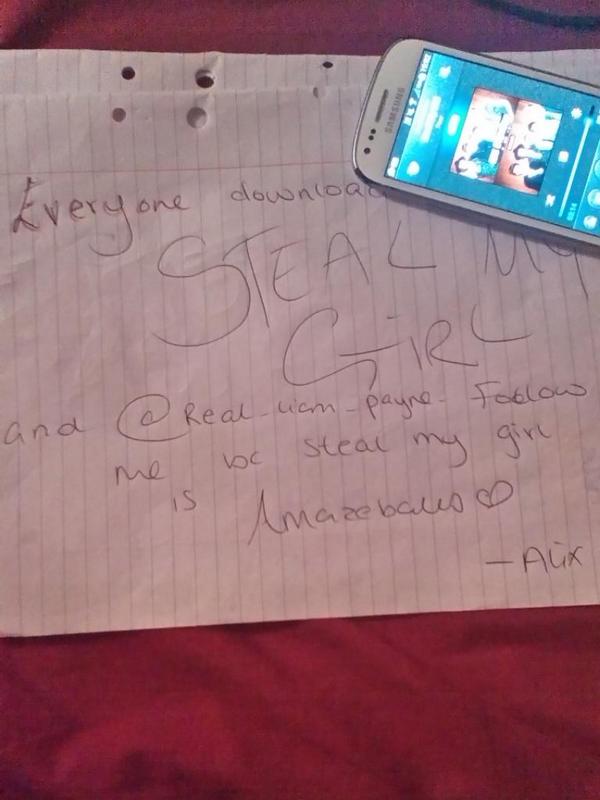 SAMSUNG
Everyone download
STEAL MY
GIRL
and @Real_liam_payne_ Follow
me bc steal my girl
is Amazeballs♡
— Alix